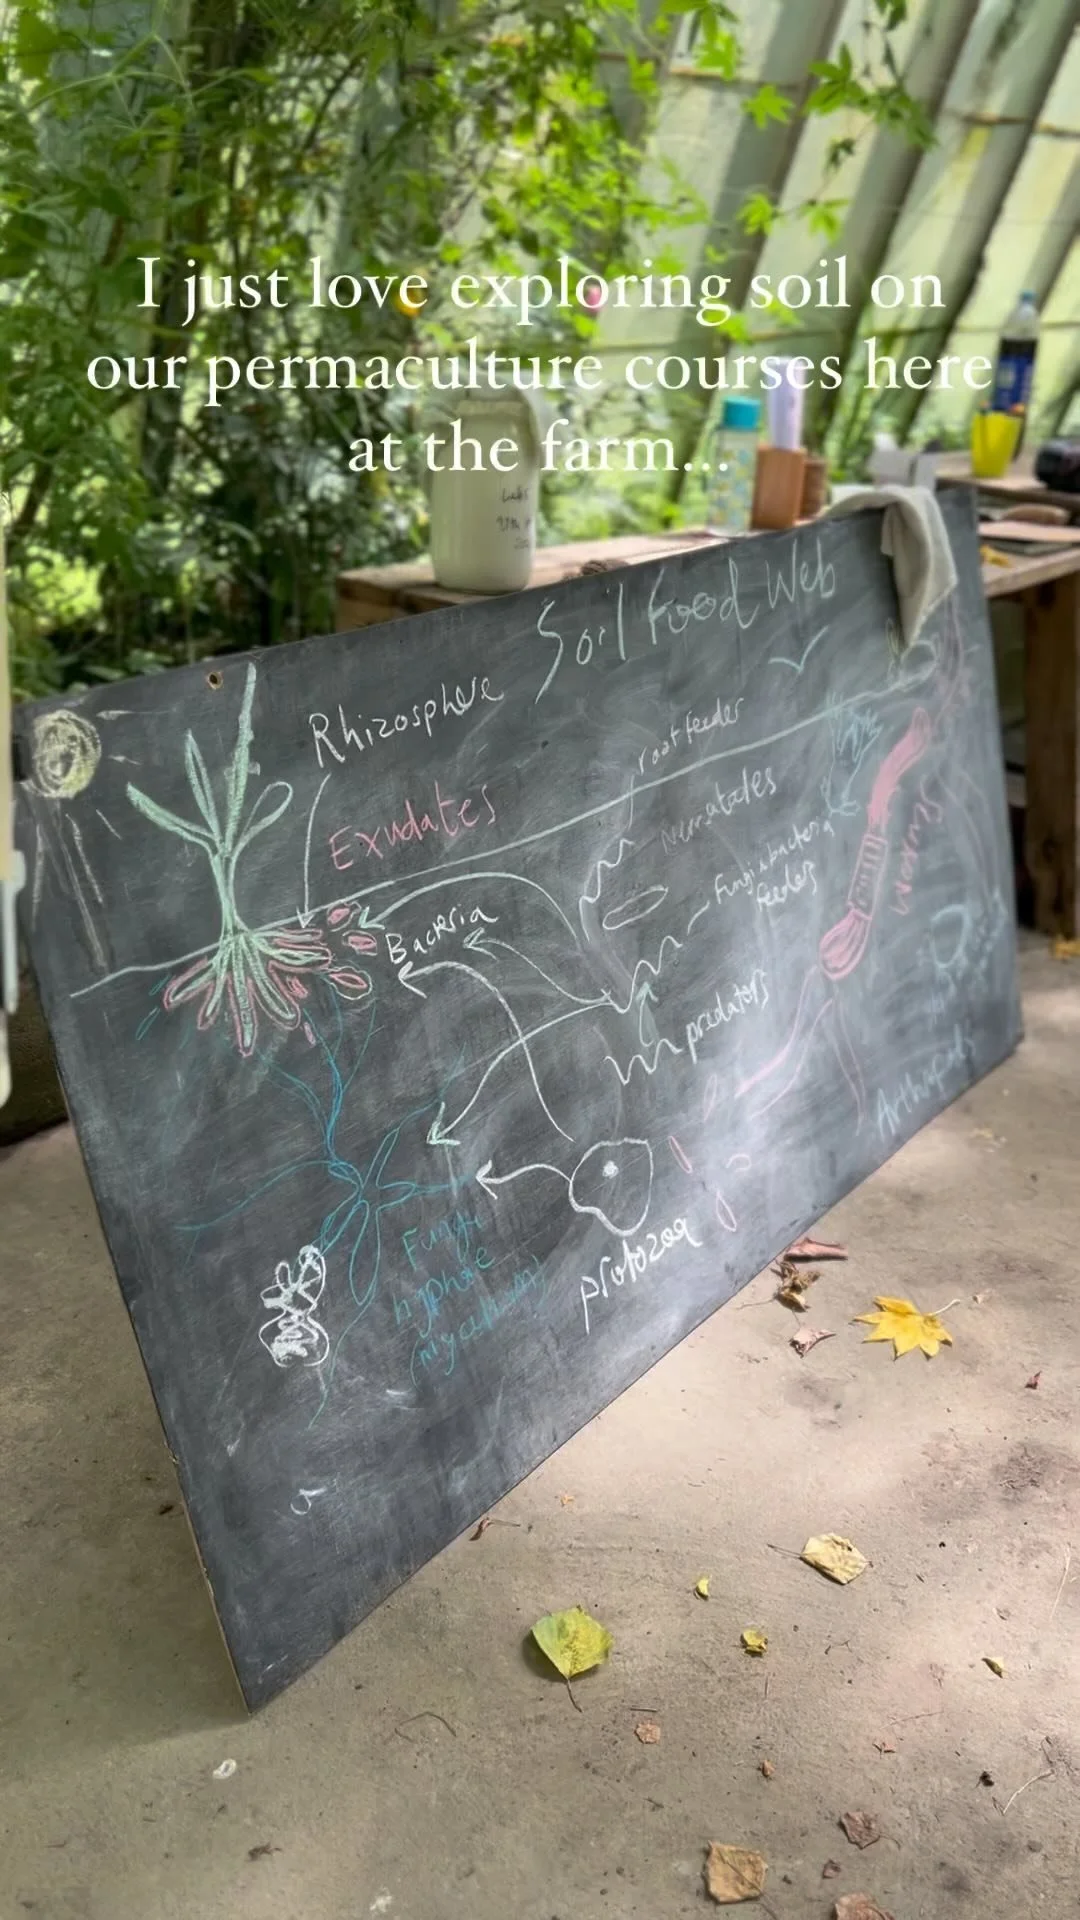 I just love exploring soil on
our permaculture courses here
at the farm...
Soil Food Web
Rhizosphere
root feeder
Exudates
Nematodes
Fungi & bacteria
feeders
Worms
Bacteria
predators
Arthropods
Fungi
hyphae
protozoa